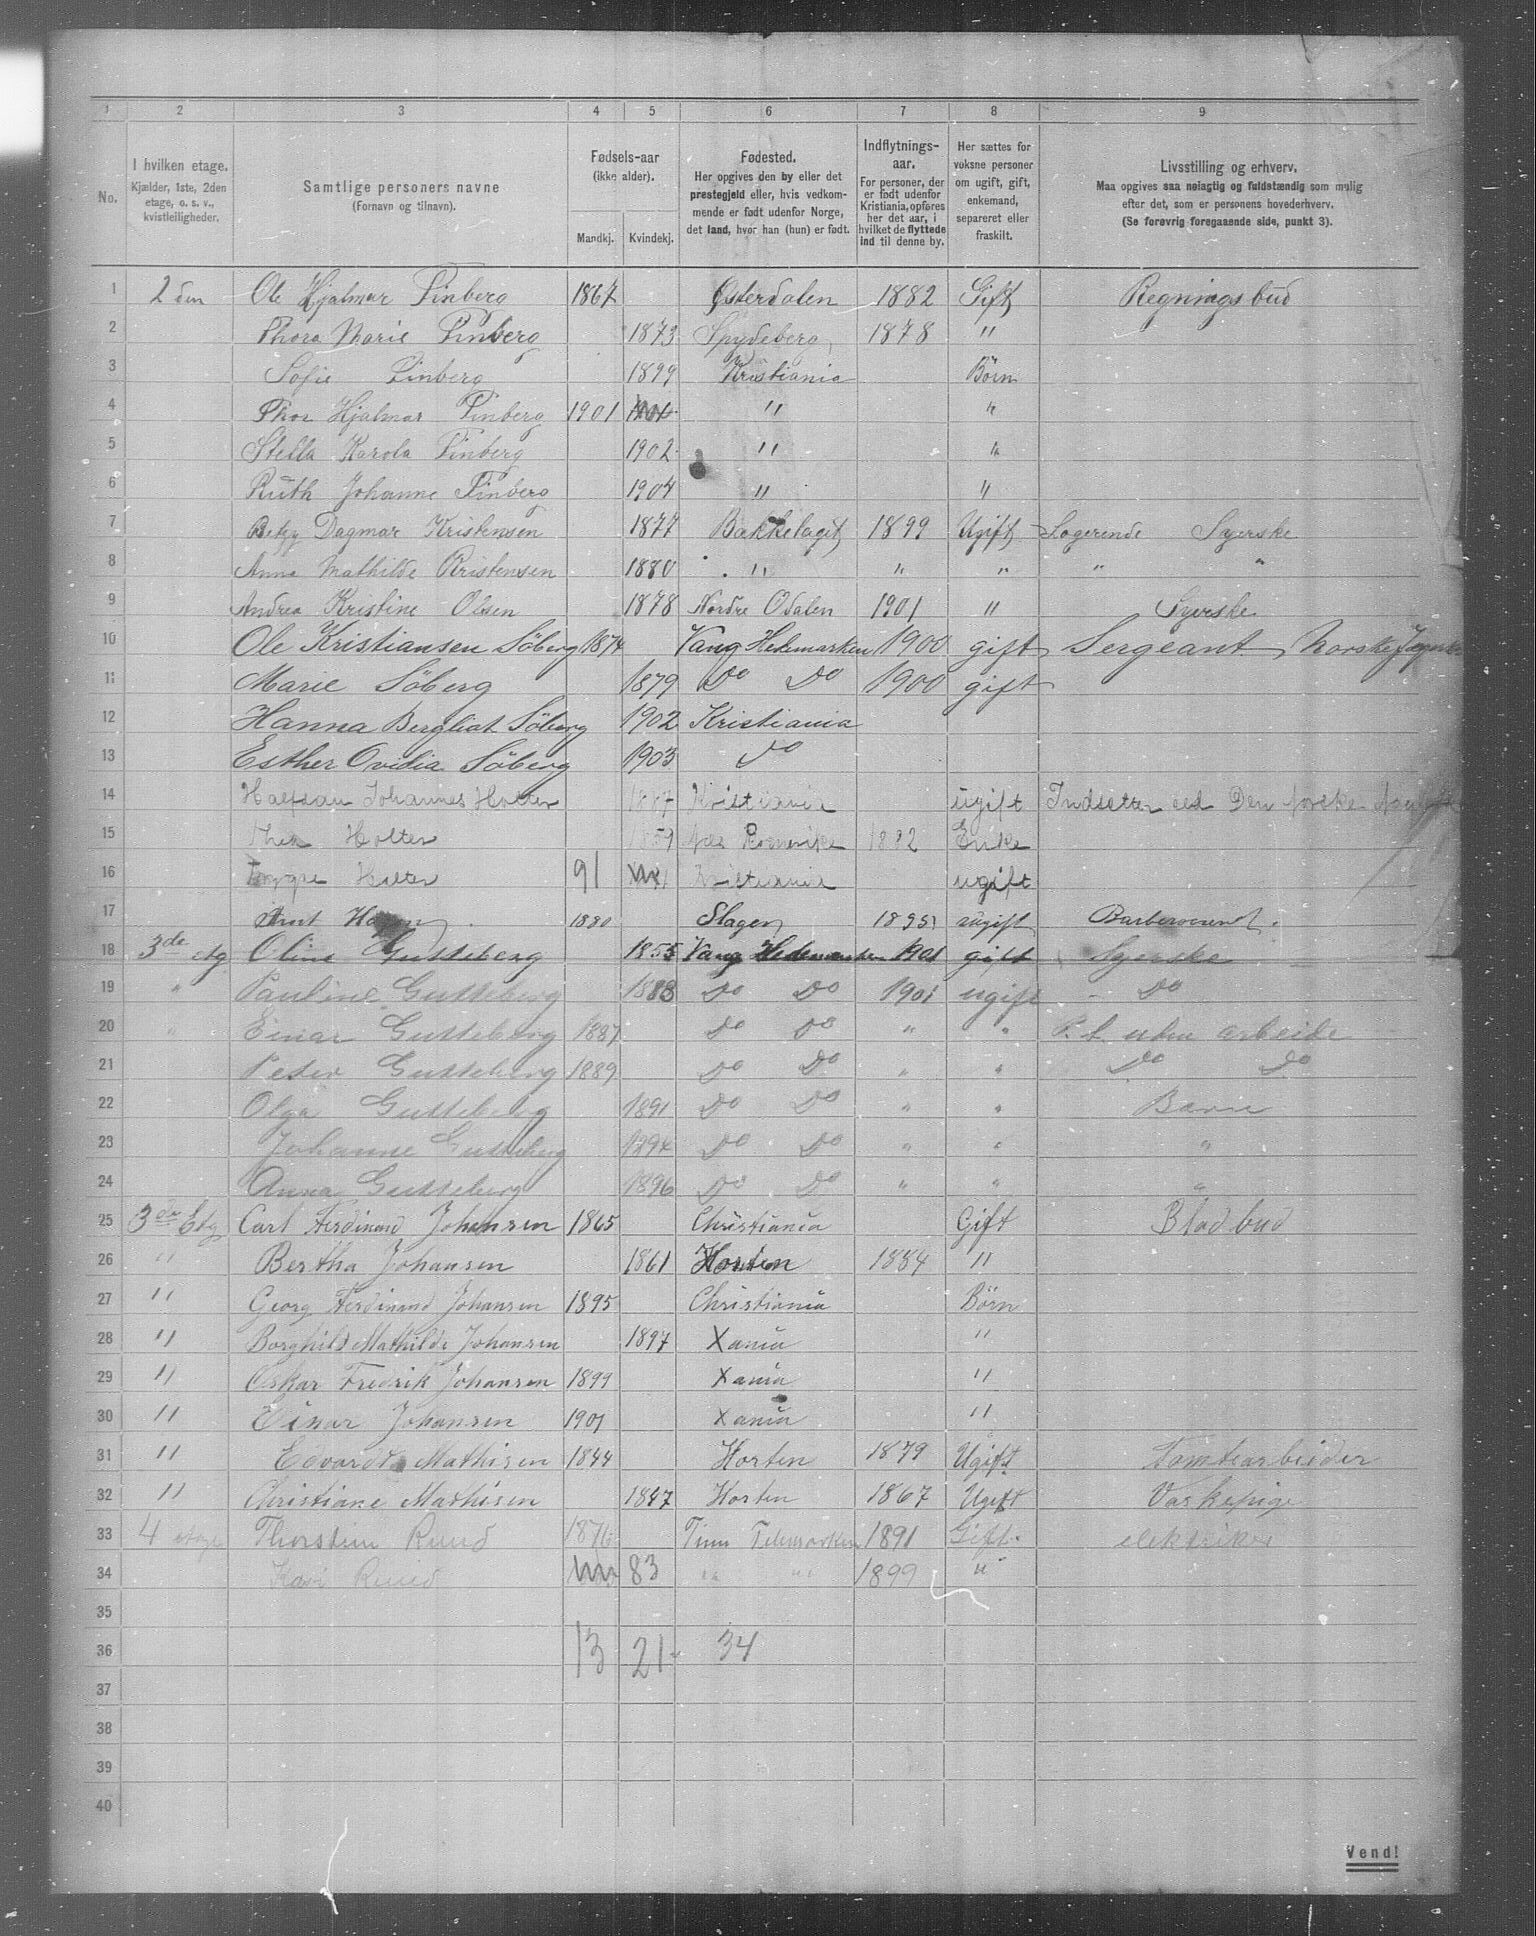 1 2 3 4 5 6 7 8 9
No.
I hvilken etage.
Kjælder, 1ste, 2den
etage, o. s. v.,
kvistleiligheder.
Samtlige personers navne
(Fornavn og tilnavn).
Fødsels-aar
(ikke alder).
Mandkj. Kvindekj.
Fødested.
Her opgives den by eller det
prestegjeld eller, hvis vedkom-
mende er født udenfor Norge,
det land, hvor han (hun) er født.
Indflytnings-
aar.
For personer, der
er født udenfor
Kristiania, opføres
her det aar, i
hvilket de flyttede
ind til denne by.
Her sættes for
voksne personer
om ugift, gift,
enkemand,
separeret eller
fraskilt.
Livsstilling og erhverv.
Maa opgives saa nøiagtig og fuldstændig som mulig
efter det, som er personens hovederhverv.
(Se forøvrig foregaaende side, punkt 3).
1 2den Ole Hjalmar Finberg 1867 Østerdalen 1882 Gift Regningsbud
2 Thora Marie Finberg 1873 Spydeberg 1878 "
3 Sofie Finberg 1899 Kristiania Børn
4 Thor Hjalmar Finberg 1901 " "
5 Stella Karola Finberg 1902 " "
6 Ruth Johanne Finberg 1904 " "
7 Betzy Dagmar Kristensen 1877 Bækkelaget 1899 Ugift Logerende Syerske
8 Anna Mathilde Kristensen 1880 " " " " "
9 Andrea Kristine Olsen 1878 Nordre Odalen 1901 " Syerske
10 Ole Kristiansen Söberg 1874 Vang Hedemarken 1900 gift Sergeant Norske
11 Marie Söberg 1879 Do Do 1900 gift
12 Hanna Bergliat Söberg 1902 Kristiania
13 Esther Ovidia Söberg 1903 Do
14 Halfdan Johannes Holter 1887 Kristiania ugift Indsetter ved Den norske
15 Thea Holter 1859 Romerike 1882 Enke
16 Trygve Holter 91 Kristiania ugift
17 Arnt 1880 Slagen 1895 ugift Barbersvend.
18 3de etg Oline Gutteberg 1855 Vang Hedemarken 1901 gift Syerske
19 " Pauline Gutteberg 1883 Do Do 1901 ugift - Do
20 " Einar Gutteberg 1887 Do Do " " P. t. uden arbeide
21 Peder Gutteberg 1889 Do Do " " Do Do
22 Olga Gutteberg 1891 Do Do " " Barn
23 Johanne Gutteberg 1894 Do Do " " "
24 Anna Gutteberg 1896 Do Do " " "
25 3de Etg Carl Ferdinand Johansen 1865 Christiania Gift Bladbud
26 " Bertha Johansen 1861 Horten 1884 "
27 " Georg Ferdinand Johansen 1895 Christiania Börn
28 " Borghild Mathilde Johansen 1897 Xania "
29 " Oskar Fredrik Johansen 1899 Xania "
30 " Einar Johansen 1901 Xania "
31 " Edvardt Mathisen 1844 Horten 1879 Ugift Tomtearbeider
32 " Christiane Mathisen 1847 Horten 1867 Ugift Vaskepige
33 4 etage Thorstein Ruud 1876 Tinn Telemarken 1891 Gift elektriker
34 Kari Ruud 83 " " 1899 "
35
36 13 21 34
37
38
39
40
Vend!